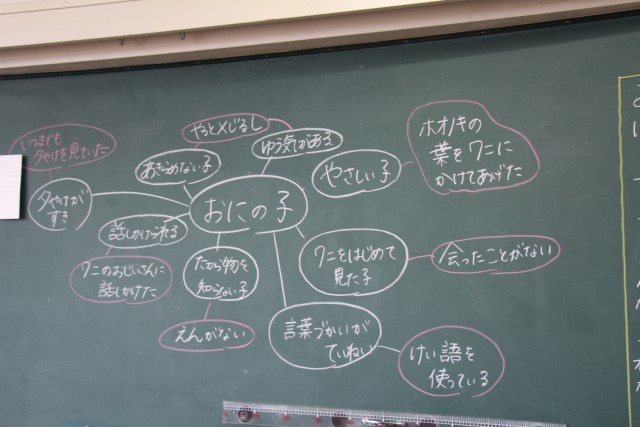 やっと×じるし
ゆう気がある
いつまでも
夕やけを見ていた
あきらめない子
やさしい子
ホオノキの
葉をワニに
かけてあげた
夕やけが
すき
おにの子
話しかけられる
ワニのおじいさんに
話しかけた
たから物を
知らない子
ワニをはじめて
見た子
会ったことがない
えんがない
言葉づかいが
ていねい
けい語を
使っている